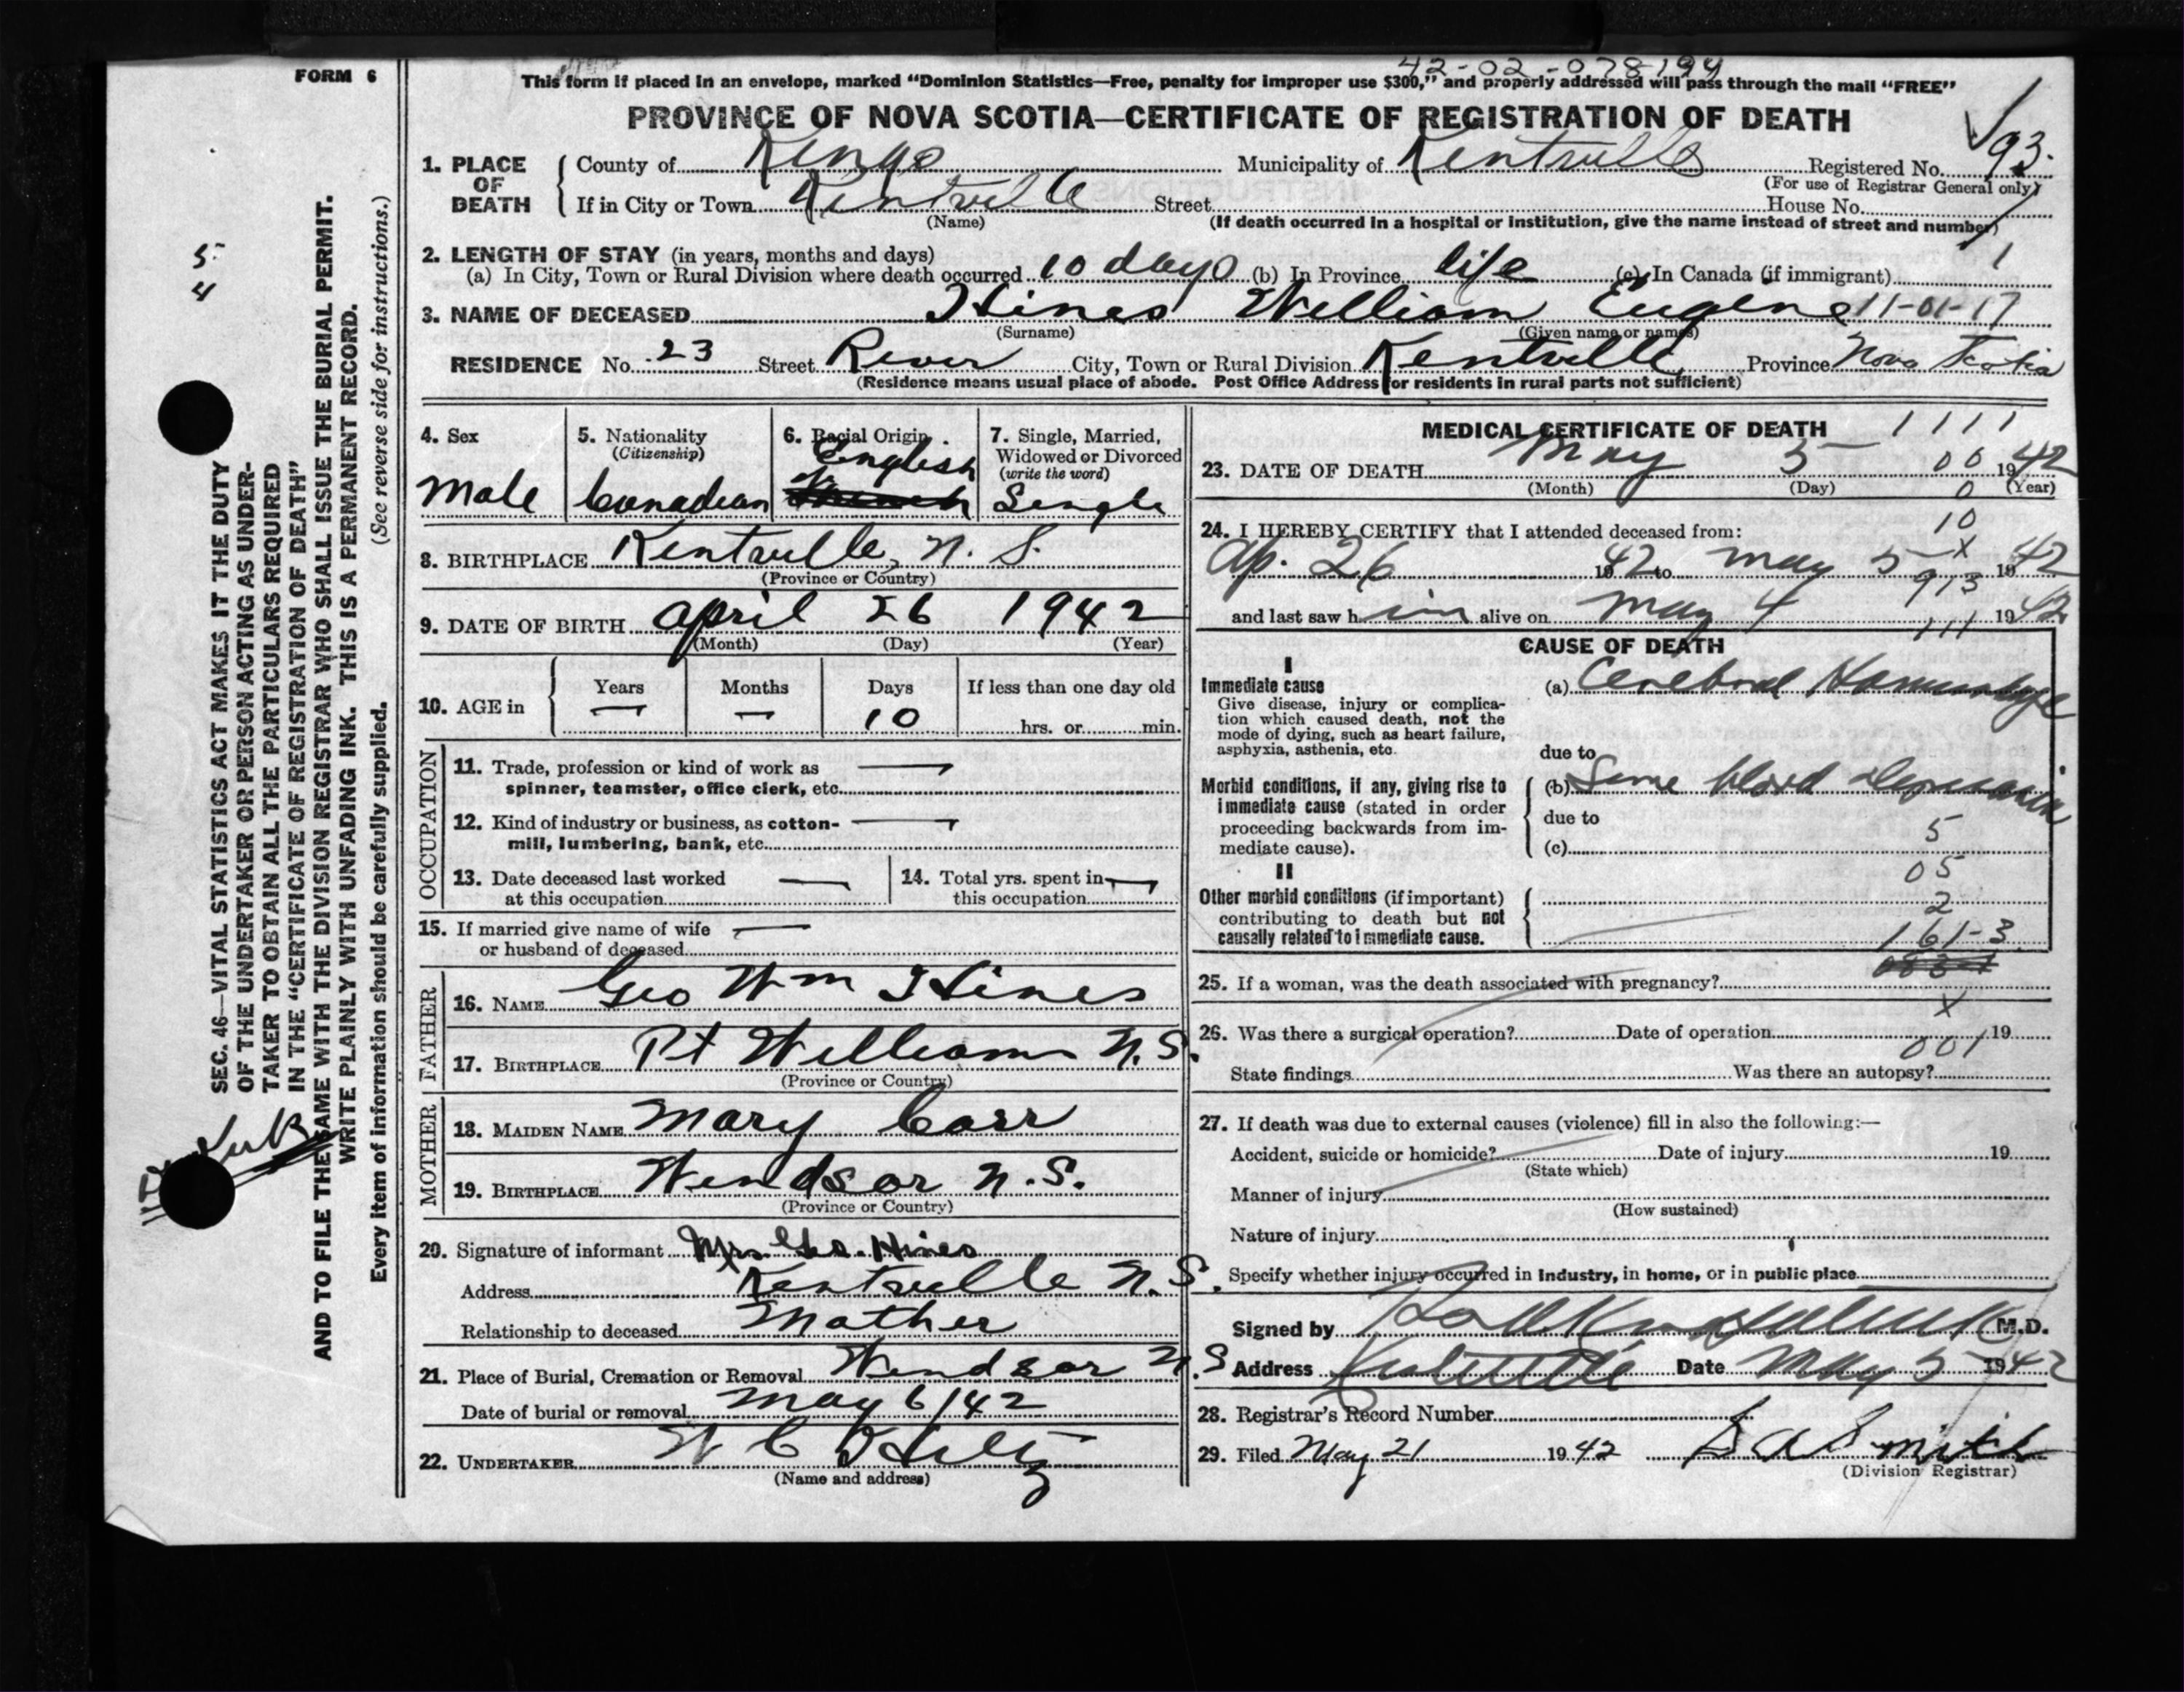 FORM 6
42-02-078194
This form if placed in an envelope, marked “Dominion Statistics—Free, penalty for improper use $300,” and properly addressed will pass through the mail “FREE”
PROVINCE OF NOVA SCOTIA—CERTIFICATE OF REGISTRATION OF DEATH
1. PLACE OF DEATH
County of Kings Municipality of Kentville Registered No. 93.
(For use of Registrar General only)
If in City or Town Kentville Street House No.
(Name) (If death occurred in a hospital or institution, give the name instead of street and number)
2. LENGTH OF STAY (in years, months and days) 1
(a) In City, Town or Rural Division where death occurred 10 days (b) In Province life (c) In Canada (if immigrant)
3. NAME OF DECEASED Hines William Eugene 11-01-17
(Surname) (Given name or names)
RESIDENCE No. 23 Street River City, Town or Rural Division Kentville Province Nova Scotia
(Residence means usual place of abode. Post Office Address for residents in rural parts not sufficient)
4. Sex
Male
5. Nationality
(Citizenship)
Canadian
6. Racial Origin
English
7. Single, Married,
Widowed or Divorced
(write the word)
Single
8. BIRTHPLACE Kentville, N. S.
(Province or Country)
9. DATE OF BIRTH April 26 1942
(Month) (Day) (Year)
10. AGE in
Years Months Days If less than one day old
— — 10 hrs. or min.
OCCUPATION
11. Trade, profession or kind of work as —
spinner, teamster, office clerk, etc.
12. Kind of industry or business, as cotton- —
mill, lumbering, bank, etc.
13. Date deceased last worked —
at this occupation
14. Total yrs. spent in —
this occupation
15. If married give name of wife —
or husband of deceased
FATHER
16. NAME Geo Wm Hines
17. BIRTHPLACE Pt Williams N.S.
(Province or Country)
MOTHER
18. MAIDEN NAME Mary Carr
19. BIRTHPLACE Windsor N.S.
(Province or Country)
20. Signature of informant Mrs. Geo. Hines
Address Kentville N.S.
Relationship to deceased Mother
21. Place of Burial, Cremation or Removal Windsor N.S.
Date of burial or removal May 6/42
22. UNDERTAKER W C Hiltz
(Name and address)
MEDICAL CERTIFICATE OF DEATH 1111
23. DATE OF DEATH May 5 00 1942
(Month) (Day) 0 (Year)
24. I HEREBY CERTIFY that I attended deceased from: 10
x
Ap. 26 1942 to May 5 1942
913
and last saw him alive on May 4 1942
111
CAUSE OF DEATH
I
Immediate cause
Give disease, injury or complica-
tion which caused death, not the
mode of dying, such as heart failure,
asphyxia, asthenia, etc.
(a) Cerebral Hemorrhage
due to
Morbid conditions, if any, giving rise to
immediate cause (stated in order
proceeding backwards from im-
mediate cause).
(b) Some blood
due to
5
(c)
05
II
Other morbid conditions (if important)
contributing to death but not
causally related to immediate cause.
2
161-3
25. If a woman, was the death associated with pregnancy?
x
26. Was there a surgical operation? Date of operation 19
001
State findings Was there an autopsy?
27. If death was due to external causes (violence) fill in also the following:—
Accident, suicide or homicide? Date of injury 19
(State which)
Manner of injury
(How sustained)
Nature of injury
Specify whether injury occurred in industry, in home, or in public place
Signed by M.D.
Address Kentville Date May 5 1942
28. Registrar's Record Number
29. Filed May 21 1942 Smith
(Division Registrar)
5
4
SEC. 46—VITAL STATISTICS ACT MAKES IT THE DUTY
OF THE UNDERTAKER OR PERSON ACTING AS UNDER-
TAKER TO OBTAIN ALL THE PARTICULARS REQUIRED
IN THE “CERTIFICATE OF REGISTRATION OF DEATH”
AND TO FILE THE SAME WITH THE DIVISION REGISTRAR WHO SHALL ISSUE THE BURIAL PERMIT.
WRITE PLAINLY WITH UNFADING INK. THIS IS A PERMANENT RECORD.
Every item of information should be carefully supplied. (See reverse side for instructions.)